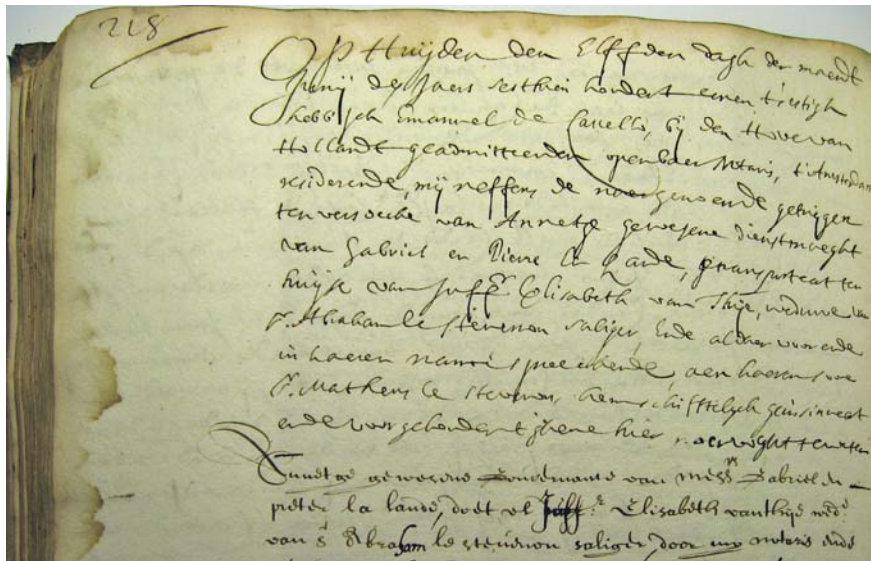 218
Op Huijden den Elffden dagh der maendt
Junij des Jaers sesthien hondert eenen tsestigh
hebb Jck Emanuel de Cavello, bij den Hove van
Hollandt geadmitteerden openbaer Notaris, t'Amsterdam
residerende, mij neffens de naergenoemde getuijgen
ten versoecke van Annetge gewesene dienstmaeght
van Gabriel en Pierre la Lande, getransporteert ten
huijse van Juffr. Elisabeth van Thije, weduwe van
Sr. Abraham le Stevenon saliger, Ende aldaer voor ende
in haeren name spreeckende, aen haeren soon
Sr. Matheus le Stevenon, hem schifftelyck geinsinueert
ende voorgehouden 't ghene hier naervolght te weten
gewesene Gouvernante van Messrs Gabriel en
pieter la lande, doet ul Juffr. Elisabeth vanthije wede.
van Sr. Abraham le stevenon saliger, door my notaris ende